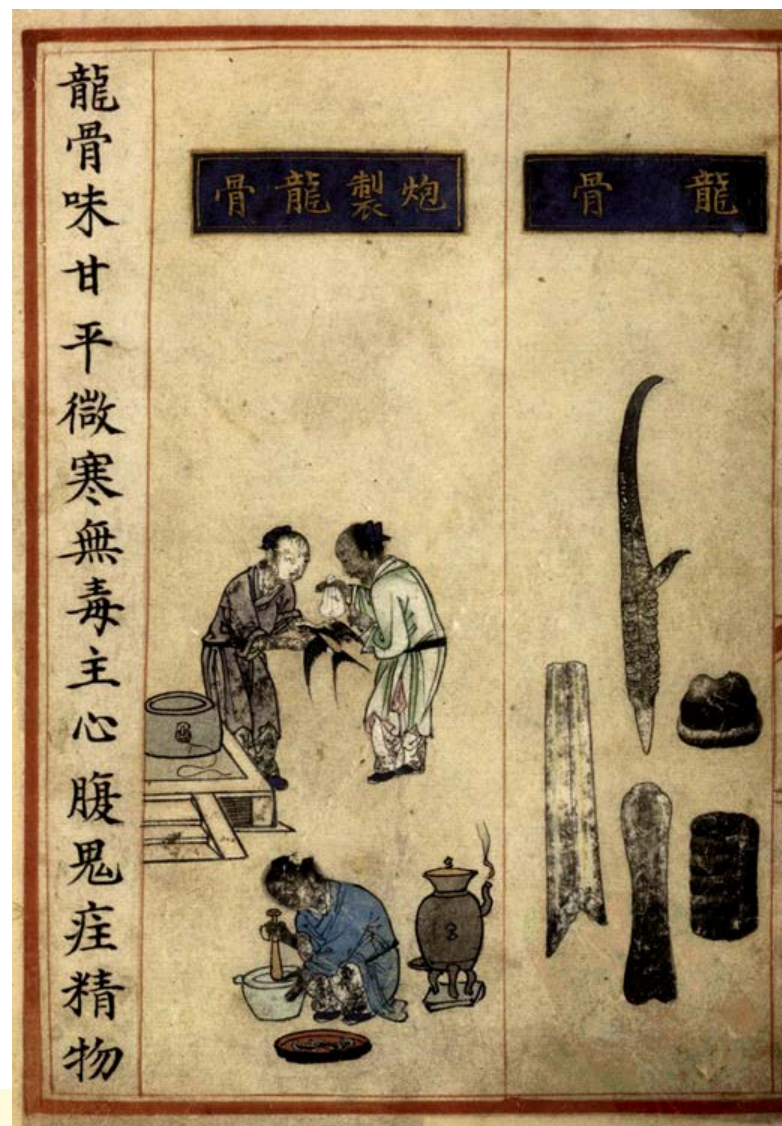 龍骨
炮製龍骨
龍骨味甘平微寒無毒主心腹鬼疰精物